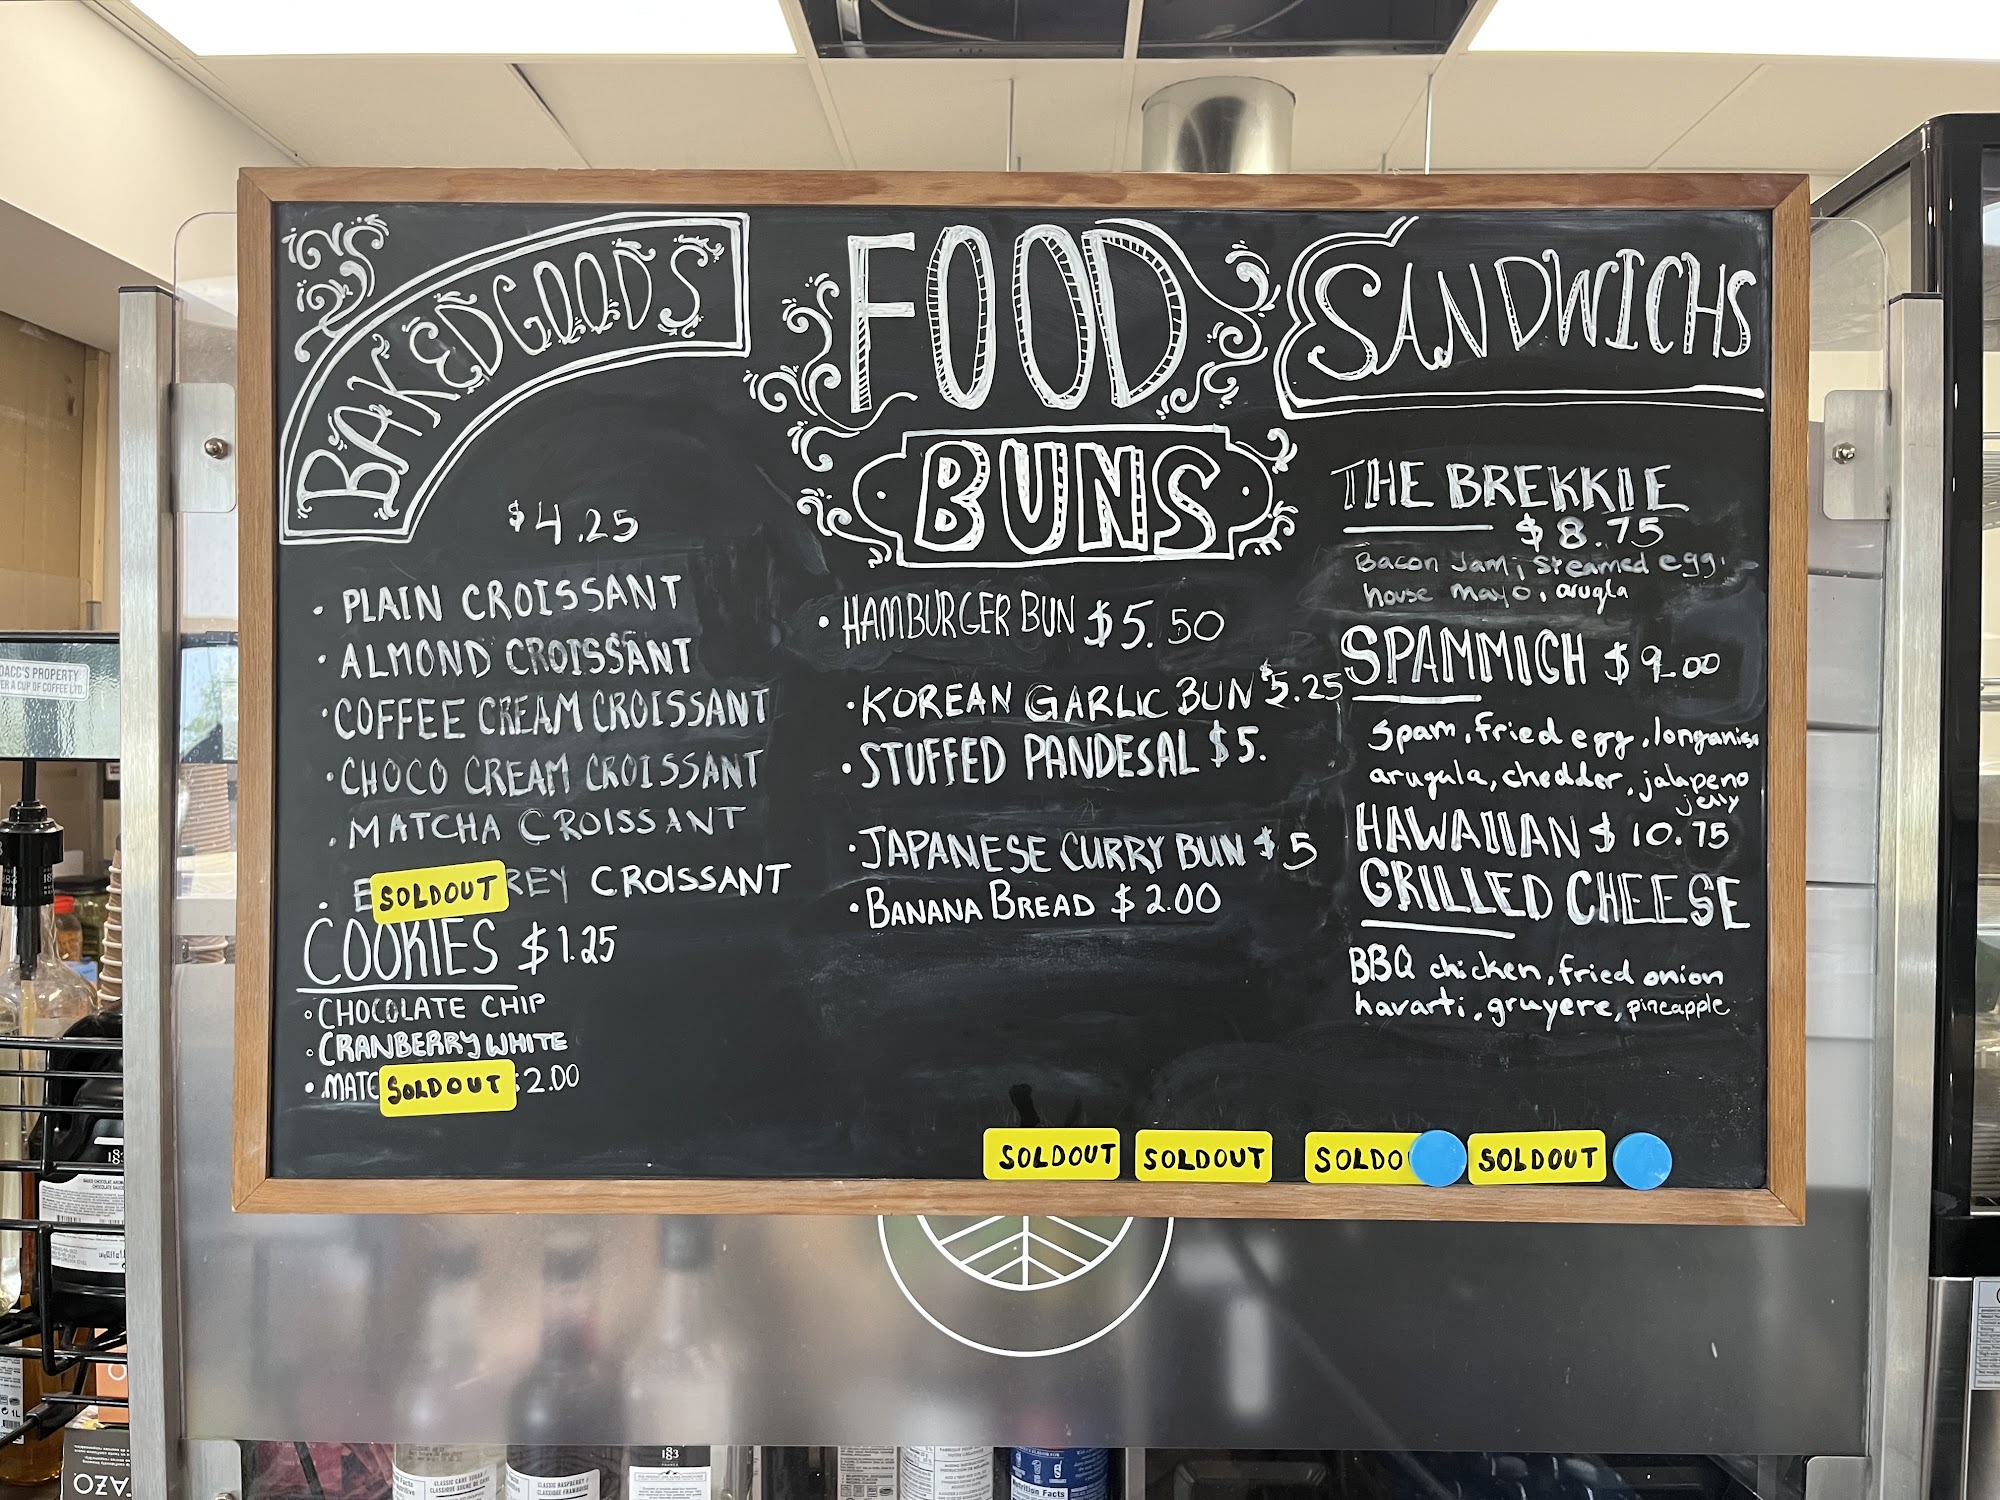 BAKED GOODS
$4.25
• PLAIN CROISSANT
• ALMOND CROISSANT
• COFFEE CREAM CROISSANT
• CHOCO CREAM CROISSANT
• MATCHA CROISSANT
• E SOLDOUT REY CROISSANT
COOKIES $1.25
• CHOCOLATE CHIP
• CRANBERRY WHITE
• MATC SOLDOUT 2.00
FOOD
BUNS
• HAMBURGER BUN $5.50
• KOREAN GARLIC BUN $5.25
• STUFFED PANDESAL $5.
• JAPANESE CURRY BUN $5
• BANANA BREAD $2.00
SANDWICHS
THE BREKKIE
$8.75
Bacon Jam, steamed egg,
house mayo, arugla
SPAMMICH $9.00
Spam, fried egg, longanisa
arugala, chedder, jalapeno
jelly
HAWAIIAN $10.75
GRILLED CHEESE
BBQ chicken, fried onion
havarti, gruyere, pineapple
SOLDOUT SOLDOUT SOLDO SOLDOUT
DACC'S PROPERTY
ER A CUP OF COFFEE LTD.
1883
Nutrition Facts